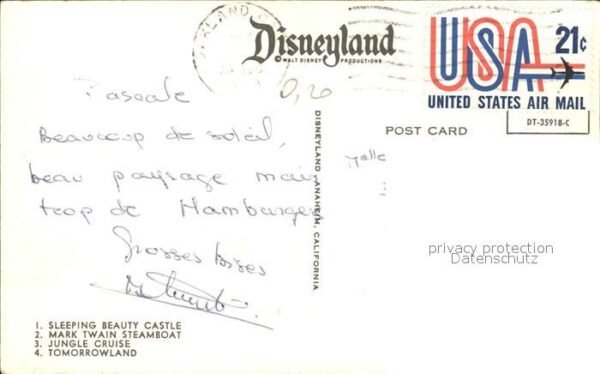 Disneyland
© WALT DISNEY PRODUCTIONS
USA 21c
UNITED STATES AIR MAIL
DT-35918-C
POST CARD
DISNEYLAND, ANAHEIM, CALIFORNIA
Pascale
Beaucoup de soleil,
beau paysage mais
trop de Hamburger
Grosses bises
Melle
privacy protection
Datenschutz
1. SLEEPING BEAUTY CASTLE
2. MARK TWAIN STEAMBOAT
3. JUNGLE CRUISE
4. TOMORROWLAND